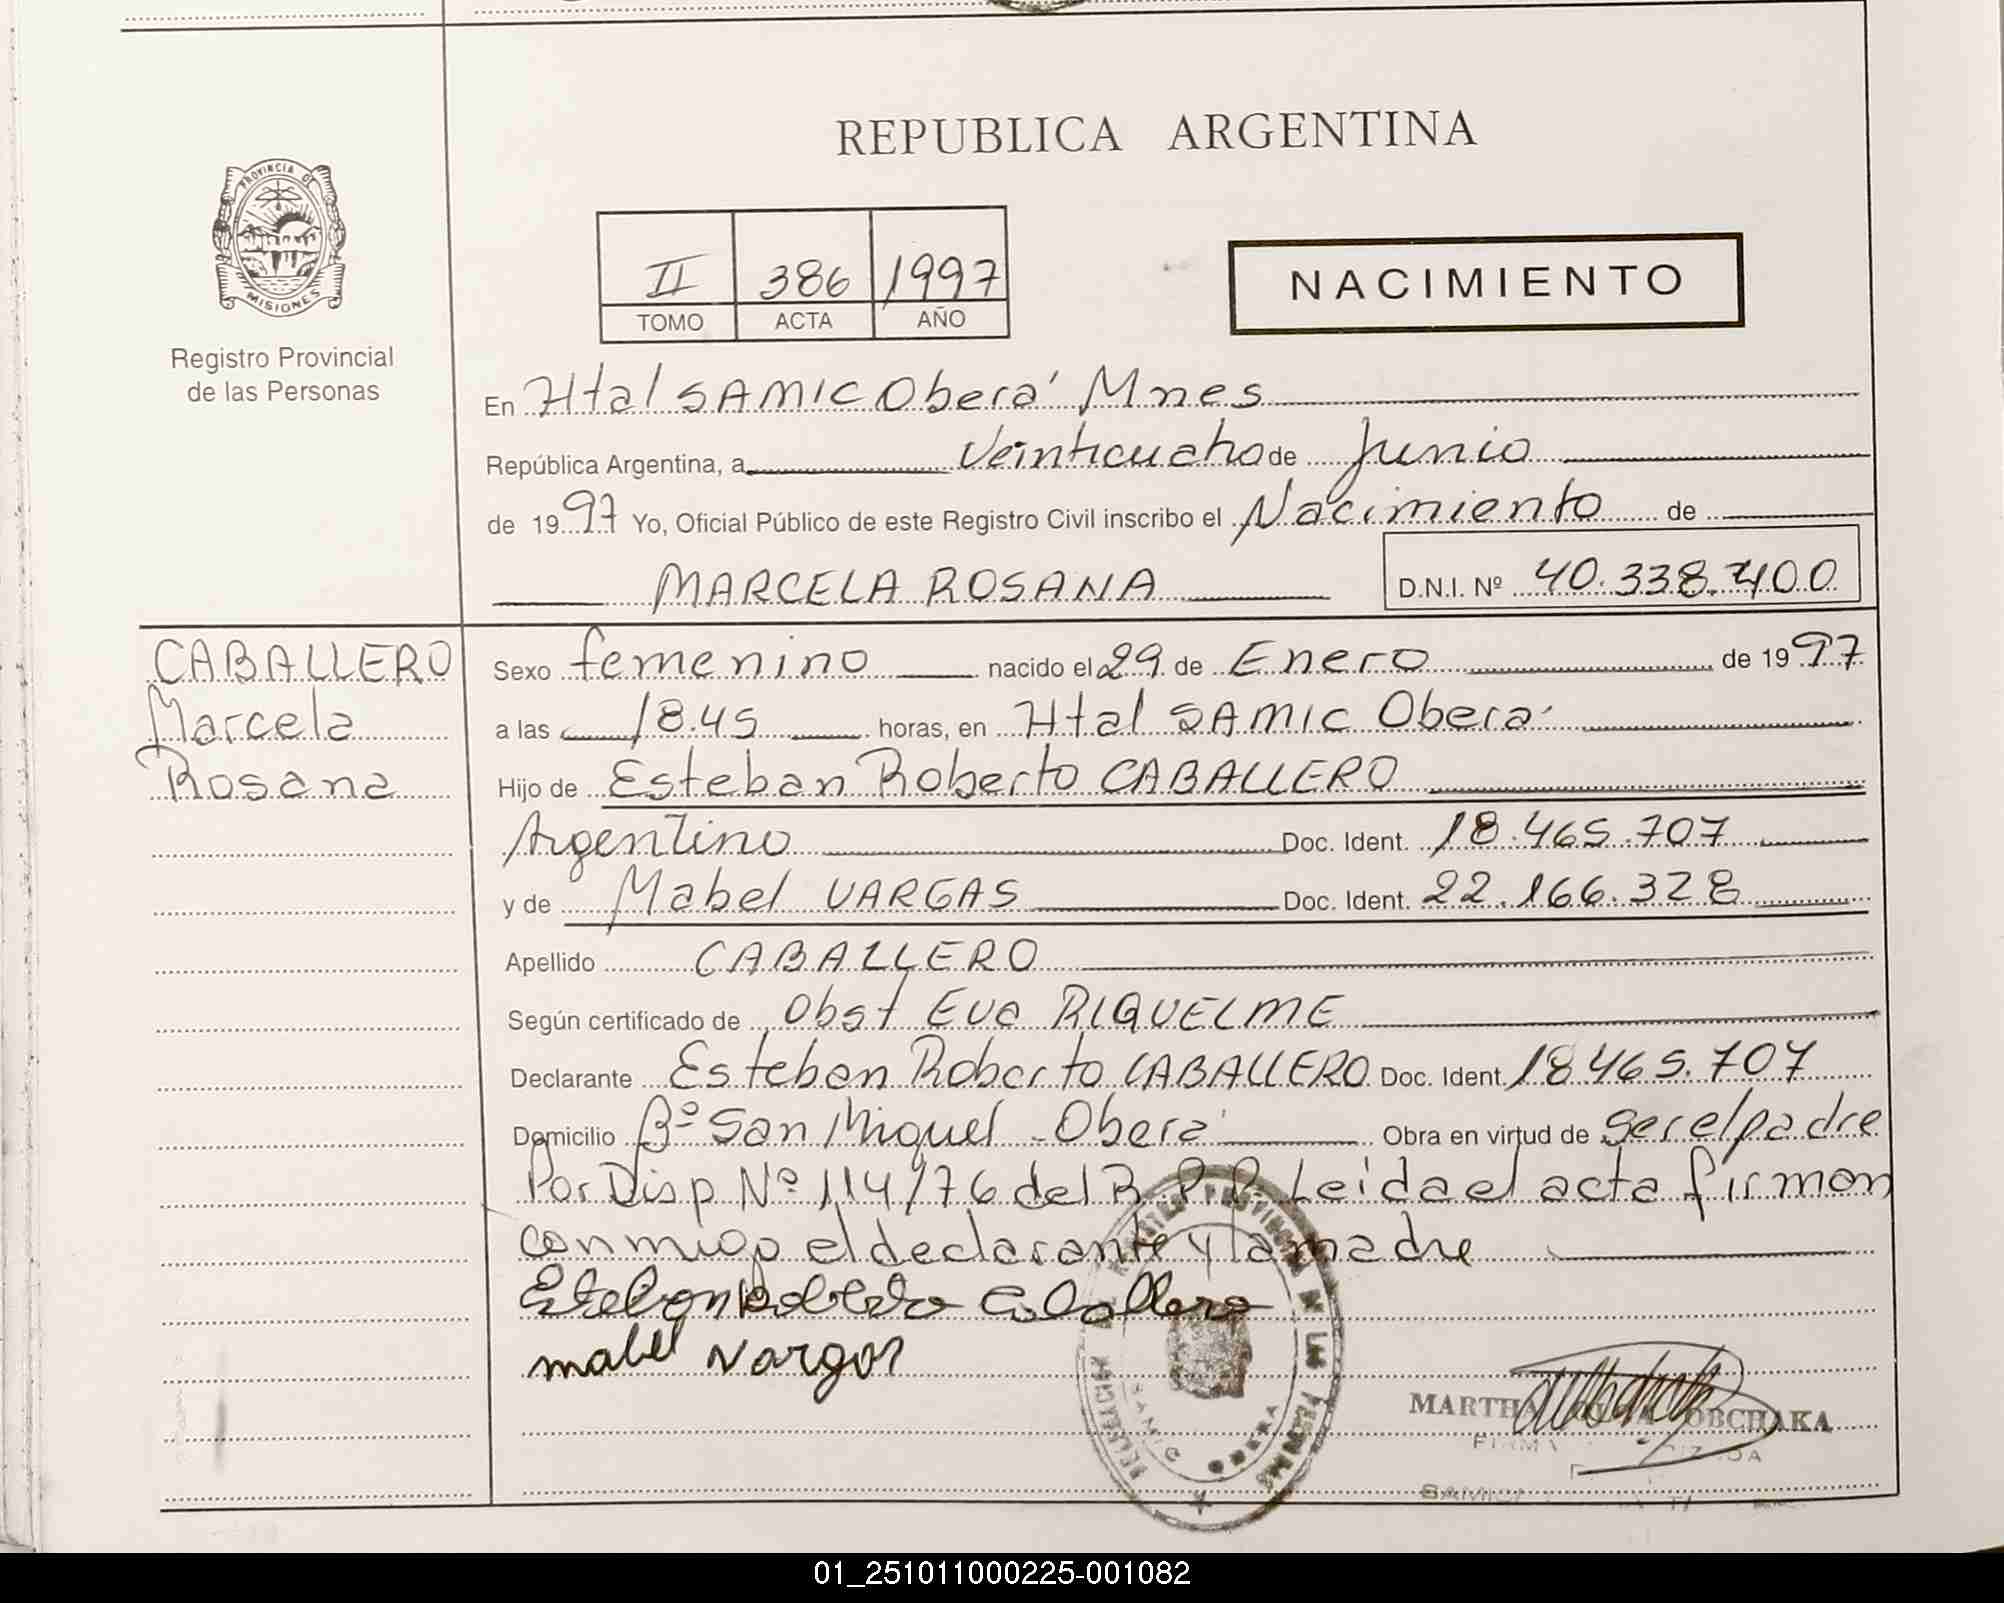 REPUBLICA ARGENTINA
PROVINCIA DE
MISIONES
Registro Provincial
de las Personas
II 386 1997
TOMO ACTA AÑO
NACIMIENTO
En Htal SAMIC Oberá Mnes
República Argentina, a Veinticuatro de Junio
de 1997 Yo, Oficial Público de este Registro Civil inscribo el Nacimiento de
MARCELA ROSANA D.N.I. Nº 40.338.400
CABALLERO
Marcela
Rosana
Sexo femenino nacido el 29 de Enero de 1997
a las 18.45 horas, en Htal SAMIC Oberá
Hijo de Esteban Roberto CABALLERO
Argentino Doc. Ident. 18.465.707
y de Mabel VARGAS Doc. Ident. 22.166.328
Apellido CABALLERO
Según certificado de Obst Eva RIQUELME
Declarante Esteban Roberto CABALLERO Doc. Ident. 18.465.707
Domicilio Bº San Miguel - Oberá Obra en virtud de ser el padre
Por Disp Nº 114/76 del R.P.P. Leída el acta firman
conmigo el declarante y la madre
Esteban Roberto Caballero
mabel vargas
SAMIC OBERA
MARTHA OBCHAKA
01_251011000225-001082